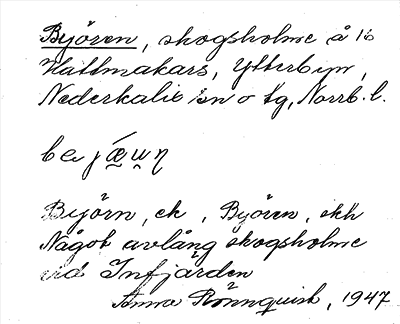 Byören, skogsholme å 16
Hattmakars, Ytterbyn,
Nederkalix sn o tg, Norrb. l.
Byörn, ek, Byören, skh
Något avlång skogsholme
vid Infjärden
Anna Rönnquist, 1947